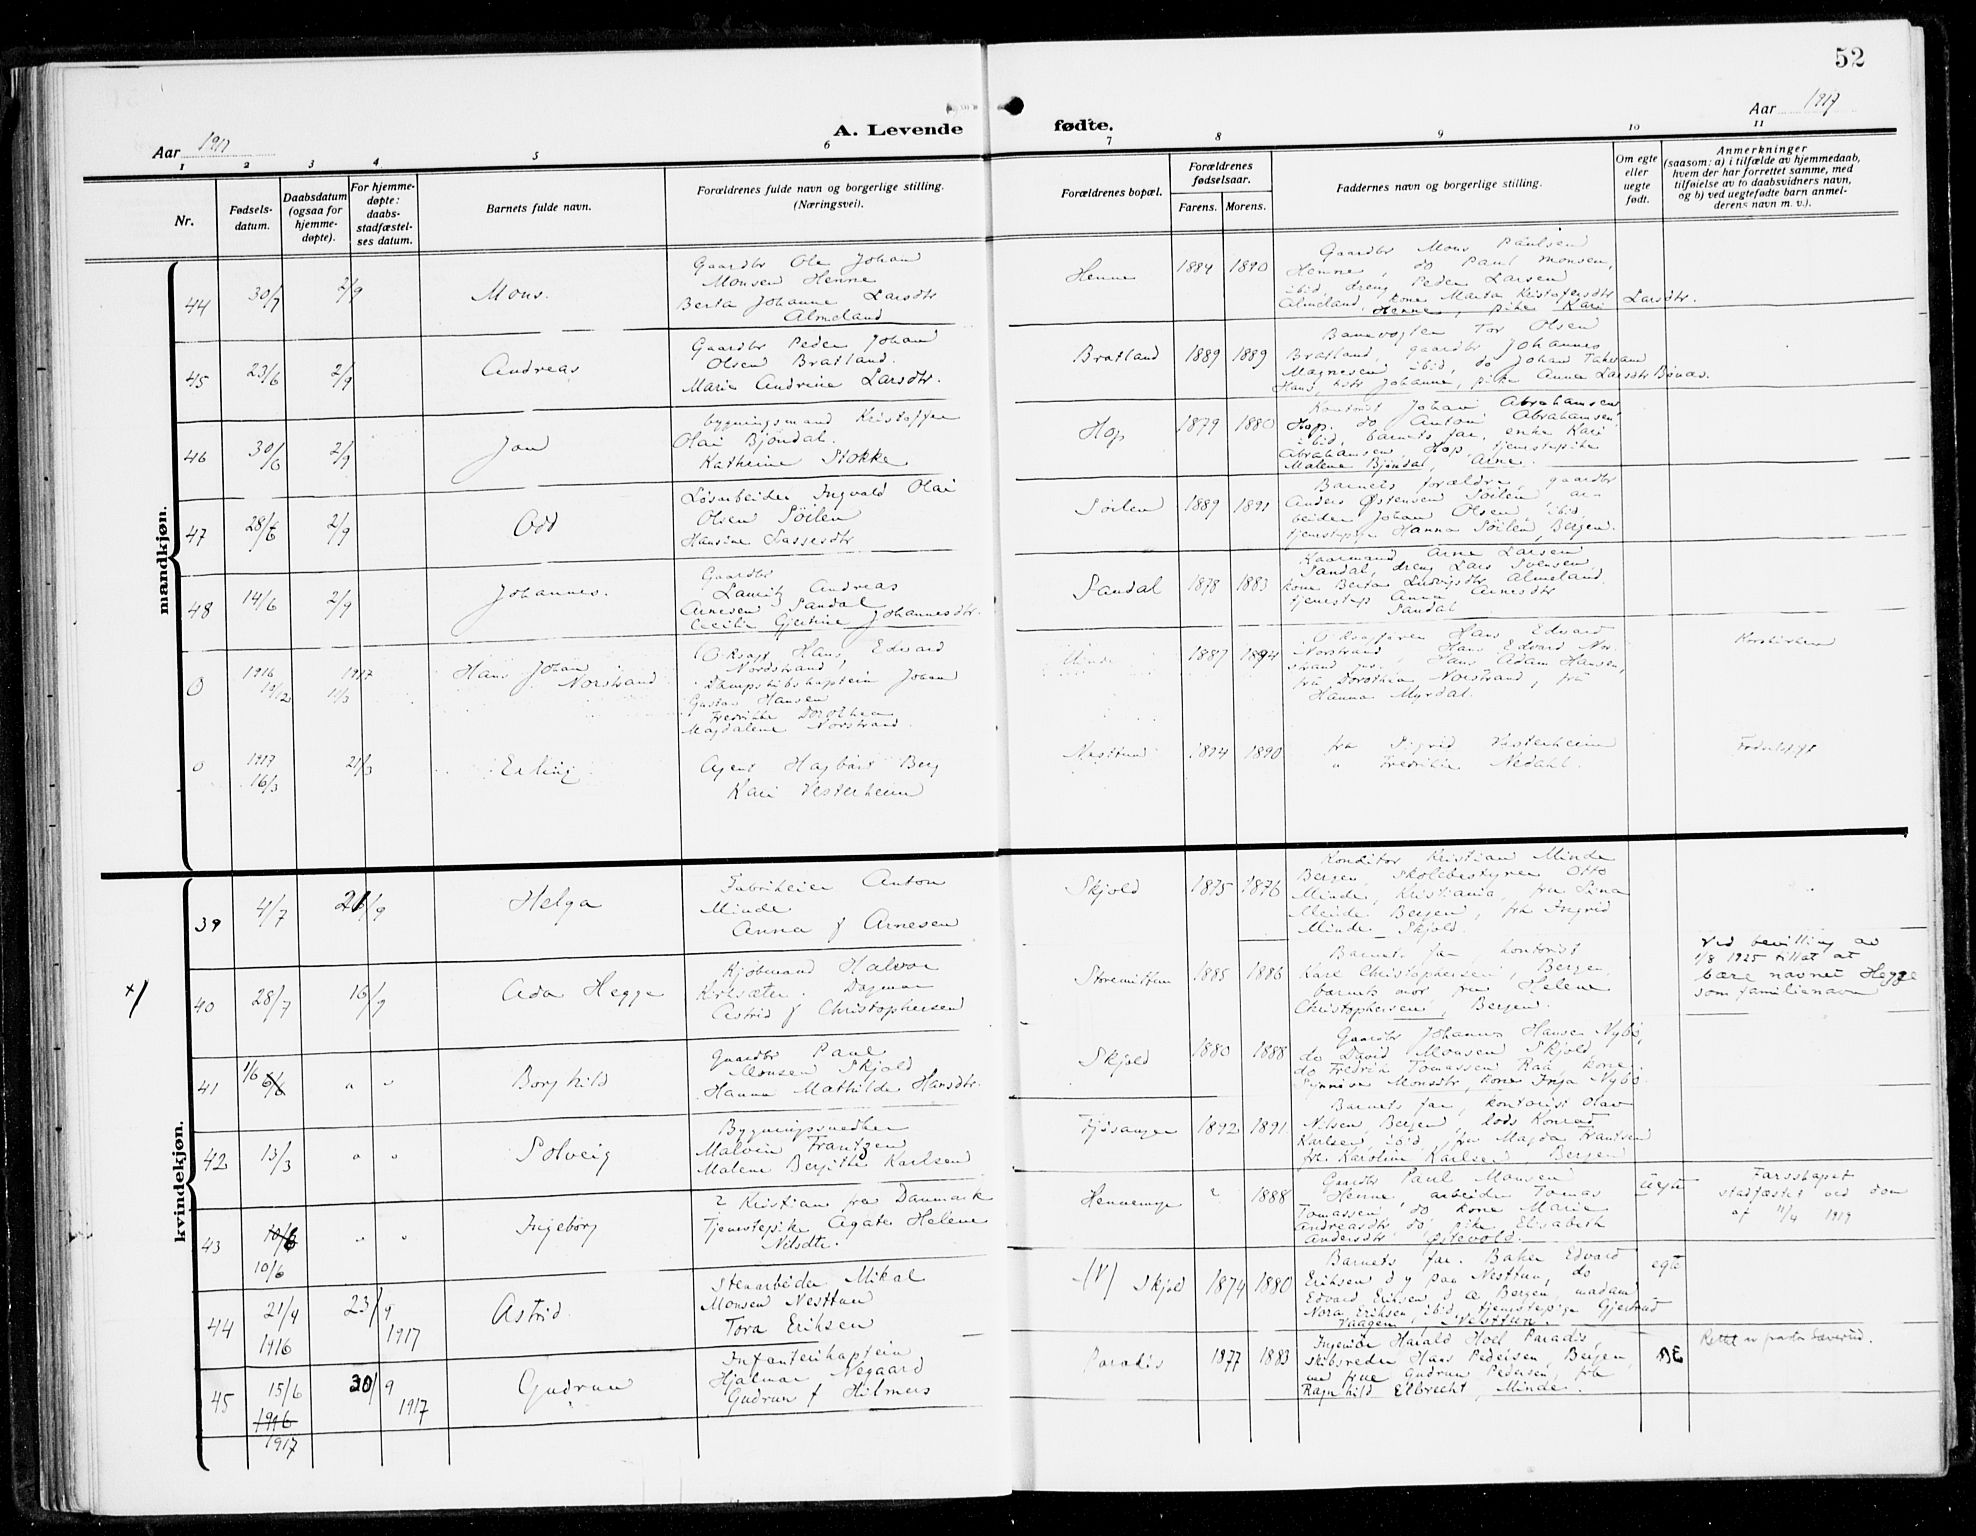 52
Aar 1917
Aar 1917
A. Levende fødte.
1 2 3 4 5 6 7 8 9 10 11
Nr.
Fødsels-
datum.
Daabsdatum
(ogsaa for
hjemme-
døpte).
For hjemme-
døpte:
daabs-
stadfæstel-
ses datum.
Barnets fulde navn.
Forældrenes fulde navn og borgerlige stilling.
(Næringsvei).
Forældrenes bopæl.
Forældrenes
fødselsaar.
Farens. Morens.
Faddernes navn og borgerlige stilling.
Om egte
eller
uegte
født.
Anmerkninger
(saasom: a) i tilfælde av hjemmedaab,
hvem der har forrettet samme, med
tilføielse av to daabsvidners navn,
og b) ved uegtefødte barn anmel-
derens navn m. v.).
mandkjøn.
44 30/7 2/9 Mons.
Gaardbr Ole Johan
Monsen Henne
Berta Johanne Larsdtr
Almeland
Henne 1884 1890
Gaardbr Mons Paulsen
Henne, do Paul Monsen,
ibid, dreng Peder Larsen
Almeland, kone Marta Kristofersdtr
Henne, pike Kari Larsdtr.
45 23/6 2/9 Andreas
Gaardbr Peder Johan
Olsen Bratland.
Marie Andrine Larsdtr.
Bratland 1889 1889
Banevogter Tor Olsen
Bratland, gaardbr Johannes
Magnesen ibid, do Johan
Johanne, pike Anna Larsdtr Bønæs.
46 30/6 2/9 Jon
bygningsmand Kristoffer
Olai Bjøndal.
Kathrine Stokke
Hop 1879 1880
Kontorist Johan Abrahamsen
Hop. do Anton Abrahamsen
ibid, barnets far, enke Kari
Abrahamsen, Hop, tjenestepike
Malene Bjøndal, Arne.
47 28/6 2/9 Odd
Løsarbeider Ingvald Olai
Olsen Søilen
Hansine Lassesdtr
Søilen 1889 1891
Barnets forældre, gaardbr
Anders Østensen Søilen ar-
beider Johan Olsen, ibid,
tjenestepike Hanna Søilen, Bergen.
48 14/6 2/9 Johannes.
Gaardbr
Lauritz Andreas
Arnesen Sandal
Cecilie Gjertine Johannesdtr.
Sandal 1878 1883
Kaarmand Arne Larsen
Sandal, dreng Lars Svensen
kone Berta Ludvigsdtr Almeland.
tjenestep Anna Arnesdtr
Sandal
0 1916 19/12 1917 11/3 Hans Johan
Norstrand
O.ksagf. Hans Edvard
Nordstrand,
Dampskibskaptein Johan
Gustav Hansen
Fredrikke Dorothea
Magdalene Norstrand.
Minde 1887 1894
O.ksagfører Hans Edvard
Norstrand, Hans Edvard Nor-
strand jr., Hans Adam Hansen,
fru Dorothea Norstrand, fru
Hanna Myrdal.
Korskirken
0 1917 16/3 21/3 Erling
Agent Hagbart Berg
Kari Vesterheim
Nesttun 1894 1890
fru Sigrid Vesterheim
" Fredrikke Nedahl.
Fødselsstift
kvindekjøn.
39 4/7 21/9 Helga
Fabrikeier Anton
Minde
Anna f Arnesen
Skjold 1875 1876
Konditor Kristian Minde
Bergen Skolebestyrer Otto
Minde, Kristiania, fru Sina
Minde Bergen, frk Ingrid
Minde Skjold.
+/ 40 28/7 16/9 Ada Hegge
Kjøbmand Halvor
Kirksæter. Dagmar
Astrid f Christophersen
Storemitten 1885 1886
Barnets far, kontorist
Karl Christophersen, Bergen,
barnets mor, fru Helene
Christophersen, Bergen.
Ved bevilling av
1/8 1925 tillat at
bære navnet Hegge
som familienavn
41 1/6 6/6 " " Borghild
Gaardbr Paul
Monsen Skjold
Hanna Mathilde Hansdtr.
Skjold 1880 1888
Gaardbr Johannes Hansen Nybø,
do David Monsen Skjold,
do Fredrik Tomassen Raa, kone
Synnøve Monsdtr, kone Inga Nybø
42 13/3 " " Solveig
Bygningssnedker
Malvin Frantzen
Malene Bergitte Karlsen
Fjøsanger 1892 1891
Barnets far, kontorist Olav
Nilsen, Bergen, lods Konrad
Karlsen ibid, fru Magda Frantsen
frk. Karoline Karlsen, Bergen
43 10/8 10/6 " " Ingeborg
? Kristian fra Danmark
Tjenestepike Agate Helene
Nilsdtr.
Hennemyr ? 1888
Gaardbr Paul Monsen
Henne, arbeider Tomas
Tomassen do kone Marie
Andreasdtr do, pike Elisabeth
Andersdtr Østevold.
Uegte
Farsskapet
stadfæstet ved dom
af 11/4 1919
44 21/9 1916 23/9 1917 Astrid.
Stenarbeider Mikal
Monsen Nesttun
Tora Eriksen
(V) Skjold 1874 1880
Barnets far. Baker Edvard
Eriksen d y paa Nesttun, do
Edvard Eriksen d æ Bergen, madam
Nora Eriksen, ibid, tjenestepige Gjertrud
Vaagen, Nesttun.
egte
45 15/6 1916 1917 30/9 1917 Gudrun
Infanterikaptein
Hjalmar Negaard
Gudrun f Hilmers
Paradis 1877 1883
Ingeniør Harald Hoel Paradis,
skibsreder Hans Pedersen, Bergen,
med frue Gudrun Pedersen, frk
Ragnhild Elbrecht, Minde.
Æ